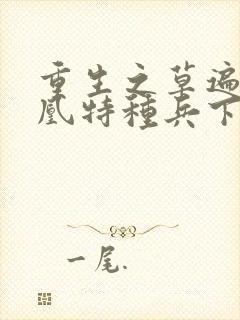 重生之草遍
凰特種兵下
一尾.